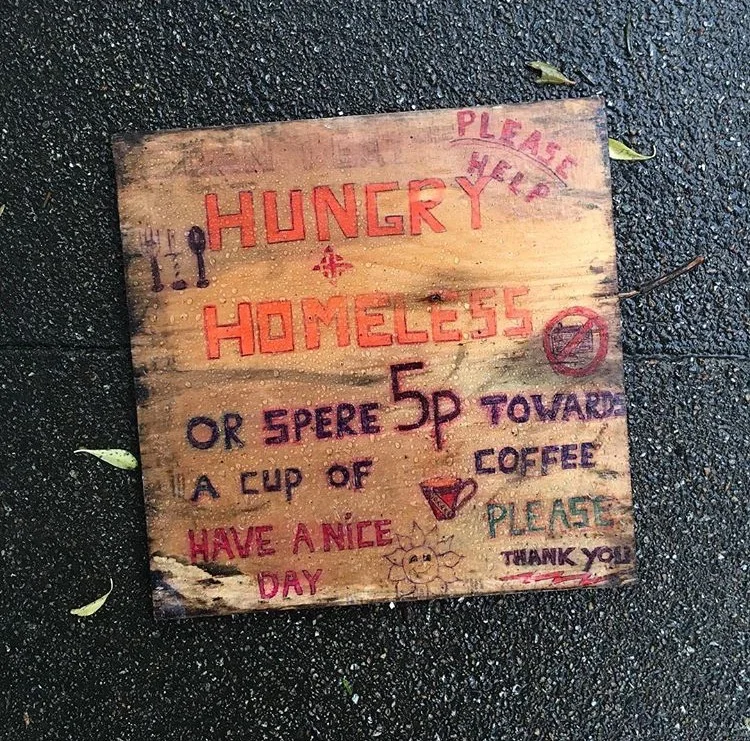 PLEASE
HELP
HUNGRY
+
HOMELESS
OR SPERE 5p TOWARDS
A CUP OF COFFEE
HAVE A NICE PLEASE
DAY THANK YOU